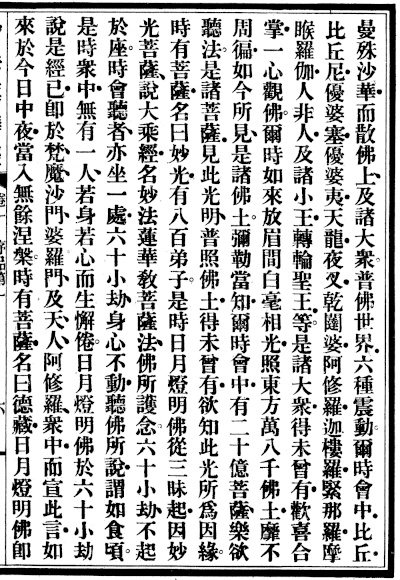 曼殊沙華而散佛上及諸大衆普佛世界六種震動爾時會中比丘
比丘尼優婆塞優婆夷天龍夜叉乾闥婆阿修羅迦樓羅緊那羅摩
睺羅伽人非人及諸小王轉輪聖王等是諸大衆得未曾有歡喜合
掌一心觀佛爾時如來放眉間白毫相光照東方萬八千佛土靡不
周徧如今所見是諸佛土彌勒當知爾時會中有二十億菩薩樂欲
聽法是諸菩薩見此光明普照佛土得未曾有欲知此光所爲因緣
時有菩薩名曰妙光有八百弟子是時日月燈明佛從三昧起因妙
光菩薩說大乘經名妙法蓮華敎菩薩法佛所護念六十小劫不起
於座時會聽者亦坐一處六十小劫身心不動聽佛所說謂如食頃
是時衆中無有一人若身若心而生懈倦日月燈明佛於六十小劫
說是經已卽於梵魔沙門婆羅門及天人阿修羅衆中而宣此言如
來於今日中夜當入無餘涅槃時有菩薩名曰德藏日月燈明佛卽